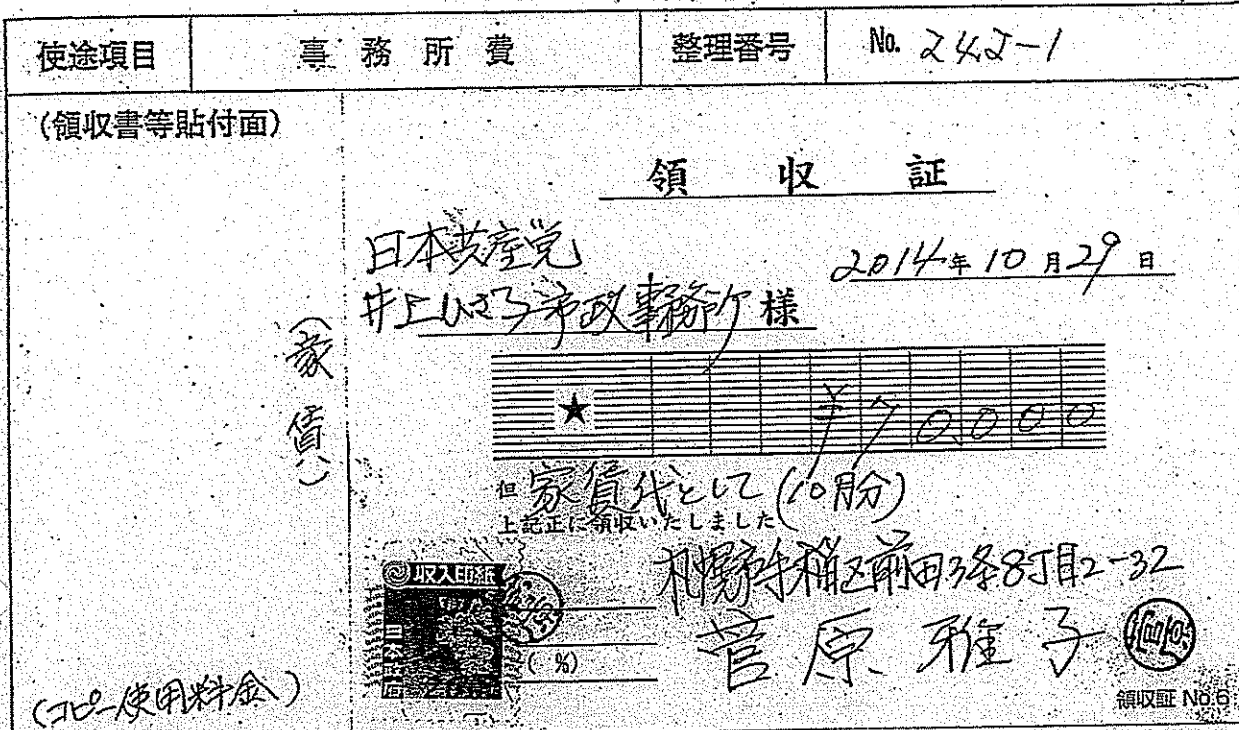 使途項目 事務所費 整理番号 No. 242-1
(領収書等貼付面)
領収証
日本共産党
2014年10月29日
井上ひさ子市政事務所 様
(家賃)
★ ¥70,000
但 家賃代として(10月分)
上記正に領収いたしました
収入印紙
札幌市手稲区前田3条8丁目2-32
菅原雅子
菅原
( %)
(コピー使用料金)
領収証 No.6